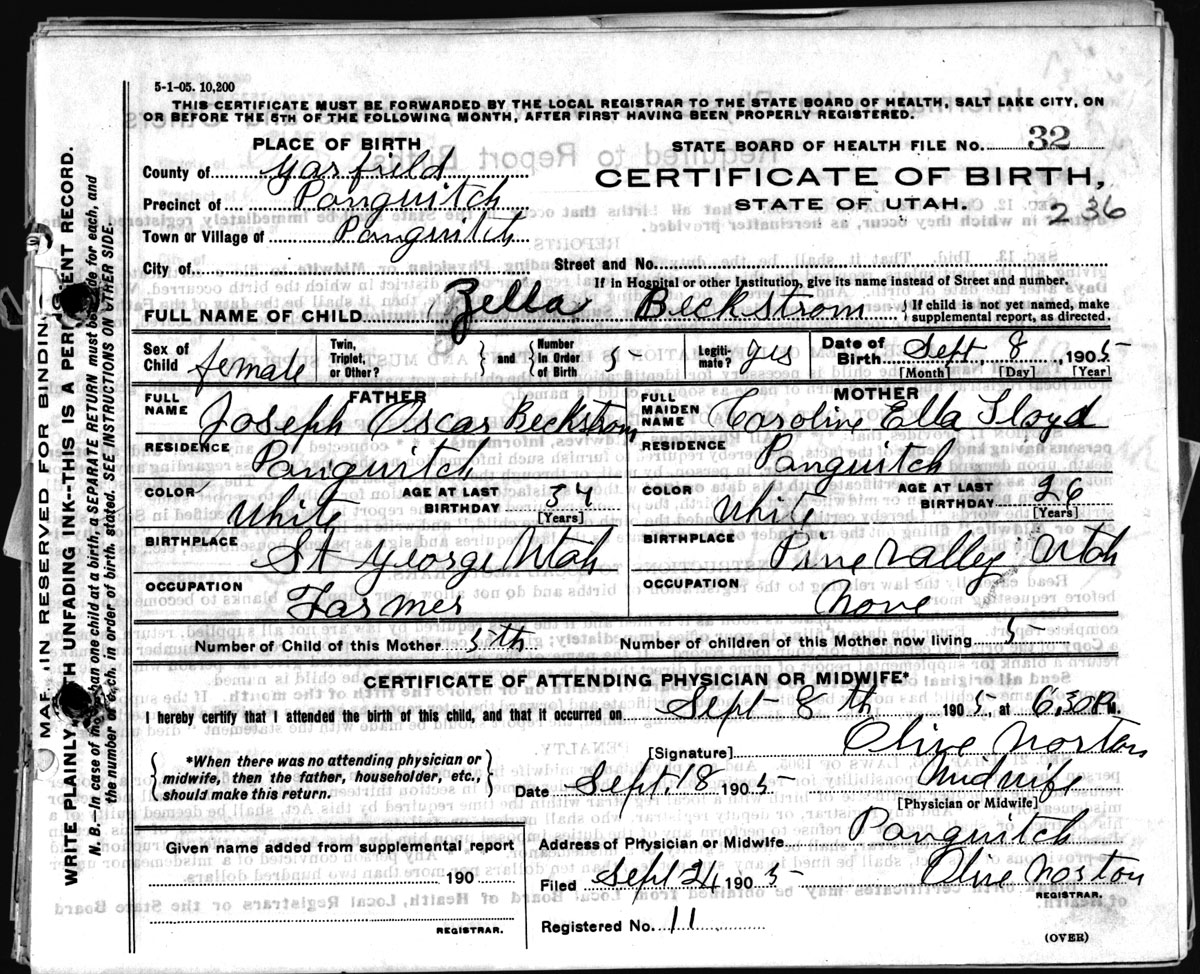 5-1-05. 10,200
THIS CERTIFICATE MUST BE FORWARDED BY THE LOCAL REGISTRAR TO THE STATE BOARD OF HEALTH, SALT LAKE CITY, ON
OR BEFORE THE 5TH OF THE FOLLOWING MONTH, AFTER FIRST HAVING BEEN PROPERLY REGISTERED.
PLACE OF BIRTH
STATE BOARD OF HEALTH FILE NO. 32
County of Garfield
CERTIFICATE OF BIRTH,
Precinct of Panguitch
STATE OF UTAH.
236
Town or Village of Panguitch
City of
Street and No.
If in Hospital or other Institution, give its name instead of Street and number.
FULL NAME OF CHILD Zella Beckstrom
If child is not yet named, make
supplemental report, as directed.
Sex of Child female
Twin, Triplet, or Other? and Number in Order of Birth 5
Legitimate? yes
Date of Birth Sept, 8 1905
[Month] [Day] [Year]
FATHER
FULL NAME Joseph Oscar Beckstrom
MOTHER
FULL MAIDEN NAME Caroline Ella Lloyd
RESIDENCE Panguitch
RESIDENCE Panguitch
COLOR White AGE AT LAST BIRTHDAY 34 [Years]
COLOR White AGE AT LAST BIRTHDAY 26 [Years]
BIRTHPLACE St George Utah
BIRTHPLACE Pine Valley Utah
OCCUPATION Farmer
OCCUPATION None
Number of Child of this Mother 5th
Number of children of this Mother now living 5
CERTIFICATE OF ATTENDING PHYSICIAN OR MIDWIFE*
I hereby certify that I attended the birth of this child, and that it occurred on Sept 8th 1905, at 6,30 P.M.
*When there was no attending physician or
midwife, then the father, householder, etc.,
should make this return.
[Signature] Olive Norton
Date Sept. 18 1905 Midwife
[Physician or Midwife]
Given name added from supplemental report
190
REGISTRAR.
Address of Physician or Midwife Panguitch
Filed Sept 24 1905 Olive Norton
REGISTRAR.
Registered No. 11
(OVER)
MARGIN RESERVED FOR BINDING
WRITE PLAINLY WITH UNFADING INK--THIS IS A PERMANENT RECORD.
N. B.--In case of more than one child at a birth, a SEPARATE RETURN must be made for each, and
the number of each, in order of birth, stated. SEE INSTRUCTIONS ON OTHER SIDE.